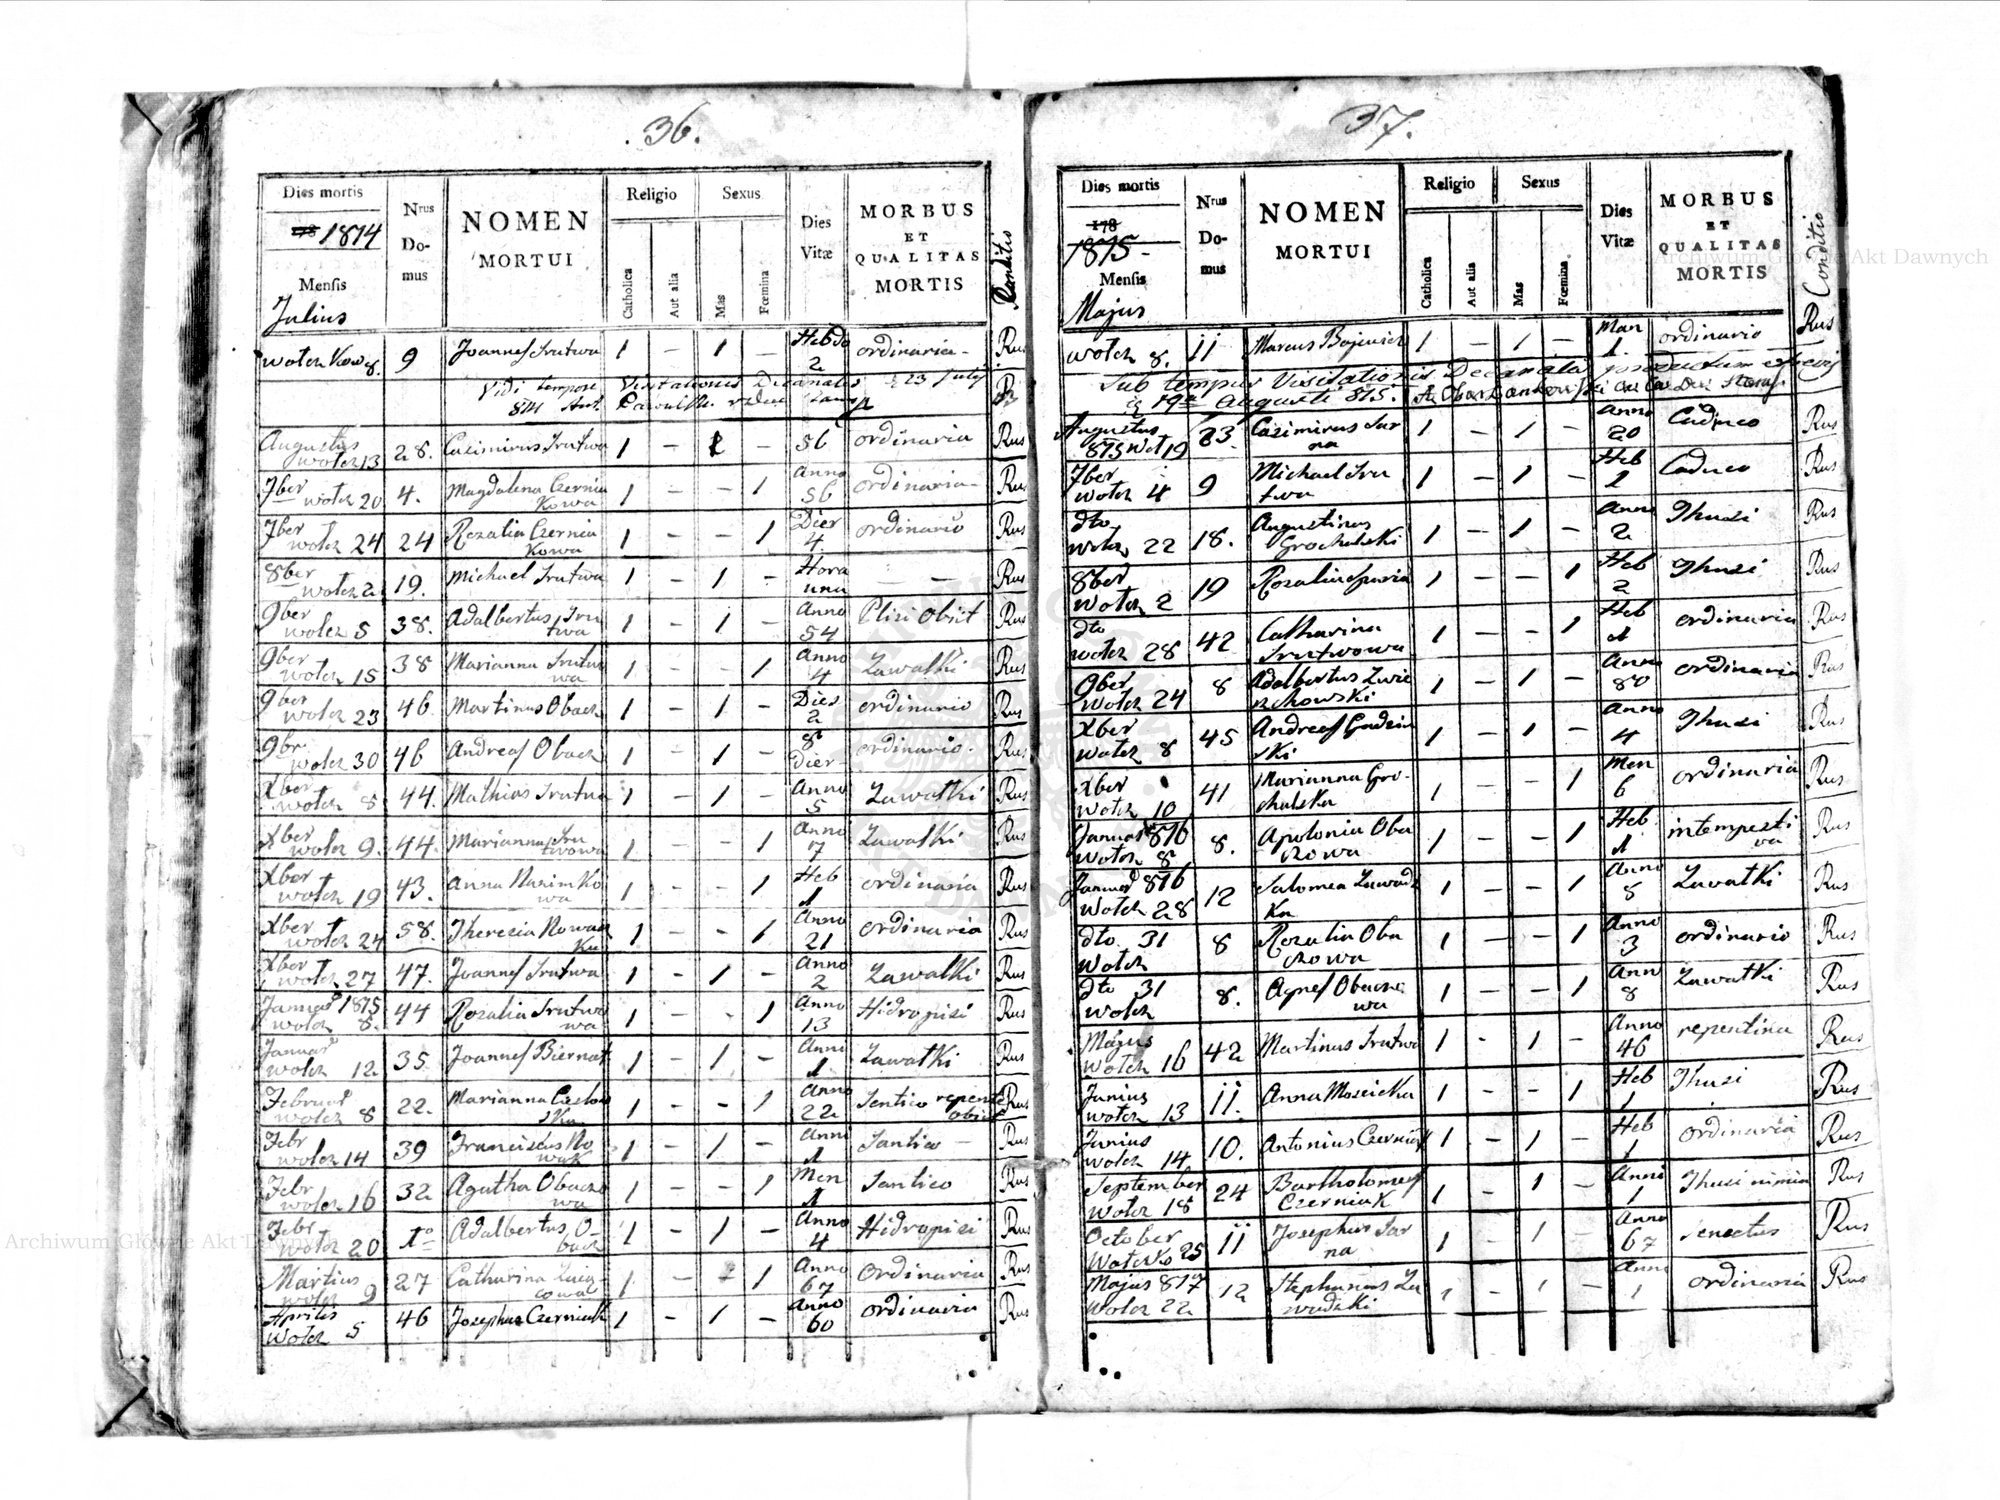 36.
Dies mortis
Nrus Domus
NOMEN MORTUI
Religio
Catholica
Aut alia
Sexus
Mas
Fœmina
Dies Vitæ
MORBUS ET QUALITAS MORTIS
Conditio
178 1814
Mensis
Julius
8. 9 Joannes Srutwa 1 – 1 – Hebdo 2 ordinaria Rus
Vidi tempore Visitationis Decanalis 23 July
814
Augustus wotch 13 28. Casimirus Srutwa 1 – 1 – 56 ordinaria Rus
7ber wotch 20 4. Magdalena Czerniakowa 1 – – 1 Anno 56 ordinaria Rus
7ber wotch 24 24 Rozalia Czerniakowa 1 – – 1 Dier 4 ordinario Rus
8ber wotch 2 19. Michael Srutwa 1 – 1 – Hora una – – Rus
9ber wotch 5 38. Adalbertus Srutwa 1 – 1 – Anno 54 Obiit Rus
9ber wotch 15 38 Marianna Srutwa 1 – – 1 Anno 4 Zawatki Rus
9ber wotch 23 46 Martinus Obacz 1 – 1 – Dies 2 ordinario Rus
9br wotch 30 46 Andreas Obacz 1 – 1 – 8 Dier ordinario Rus
Xber wotch 8 44. Mathias Srutwa 1 – 1 – Anno 5 Zawatki Rus
Xber wotch 9. 44. Marianna Srutwowa 1 – – 1 Anno 7 Zawatki Rus
Xber wotch 19 43. Anna 1 – – 1 Heb 1 ordinaria Rus
Xber wotch 24 58. Theresia Nowacka 1 – – 1 Anno 21 ordinaria Rus
Xber wotch 27 47. Joannes Srutwa 1 – 1 – Anno 2 Zawatki Rus
Januar 1815 wotch 8. 44 Rozalia Srutwowa 1 – – 1 Anno 13 Hidropisi Rus
Januar wotch 12 35 Joannes Biernat 1 – 1 – Anni 1 Zawatki Rus
Februar wotch 8 22. Marianna 1 – – 1 Anno 22 repente obiit Rus
Febr wotch 14 39 Franciscus Nowak 1 – 1 – Anni 1 Rus
Febr wotch 16 32 Agatha Obaczowa 1 – – 1 Men 1 Rus
Febr wotch 20 Adalbertus Obacz 1 – 1 – Anno 4 Hidropisi Rus
Martius wotch 9 27 Catharina 1 – 1 Anno 67 ordinaria Rus
Aprilis wotch 5 46 Josephus Czerniak 1 – 1 – Anno 60 ordinaria Rus
37.
Dies mortis
Nrus Domus
NOMEN MORTUI
Religio
Catholica
Aut alia
Sexus
Mas
Fœmina
Dies Vitæ
MORBUS ET QUALITAS MORTIS
Conditio
178
1815
Mensis
Majus
wotch 8. 11 Marcus 1 – 1 – Man 1. ordinario Rus
Sub tempus Visitationis Decanalis productum
19 Augusti 815.
Augustus 815 wot 19 23. Casimirus Sarna 1 – 1 – Anno 20 Caduco Rus
7ber wotch 4 9 Michael Srutwa 1 – 1 – Heb 2 Caduco Rus
dto wotch 22 18. Augustinus Grochulski 1 – 1 – Anno 2 Thusi Rus
8ber wotch 2 19 Rozalia spuria 1 – – 1 Heb 2 Thusi Rus
dto wotch 28 42 Catharina Srutwowa 1 – – 1 Heb 1 ordinaria Rus
9ber wotch 24 8 Adalbertus Zwierzchowski 1 – 1 – Anno 80 ordinaria Rus
Xber wotch 8 45 Andreas 1 – 1 – Anno 4 Thusi Rus
Xber wotch 10 41 Marianna Grochulska 1 – – 1 Men 6 ordinaria Rus
Januar 816 wotch 8 8. Apolonia Obaczowa 1 – – 1 Heb 1 intempestiva Rus
Januar 816 wotch 28 12 Salomea Zawadzka 1 – – 1 Anno 8 Zawatki Rus
dto 31 wotch 8 Rozalia Obaczowa 1 – – 1 Anno 3 ordinario Rus
dto 31 wotch 8. Agnes Obaczowa 1 – – 1 Ann 8 Zawatki Rus
Majus wotch 16 42 Martinus Srutwa 1 – 1 – Anno 46 repentina Rus
Junius wotch 13 11. Anna Mosieka 1 – – 1 Heb 1 Thusi Rus
Junius wotch 14 10. Antonius Czerniak 1 – 1 – Heb 1 ordinaria Rus
September wotch 18 24 Bartholomeus Czerniak 1 – 1 – Anni 1 Thusi nimia Rus
October 25 11 Josephus Sarna 1 – 1 – Anno 67 senectus Rus
Majus 817 wotch 22 12 Stephanus Zawadzki 1 – 1 – Anno 1 ordinaria Rus
Archiwum Główne Akt Dawnych
Archiwum Główne Akt Dawnych